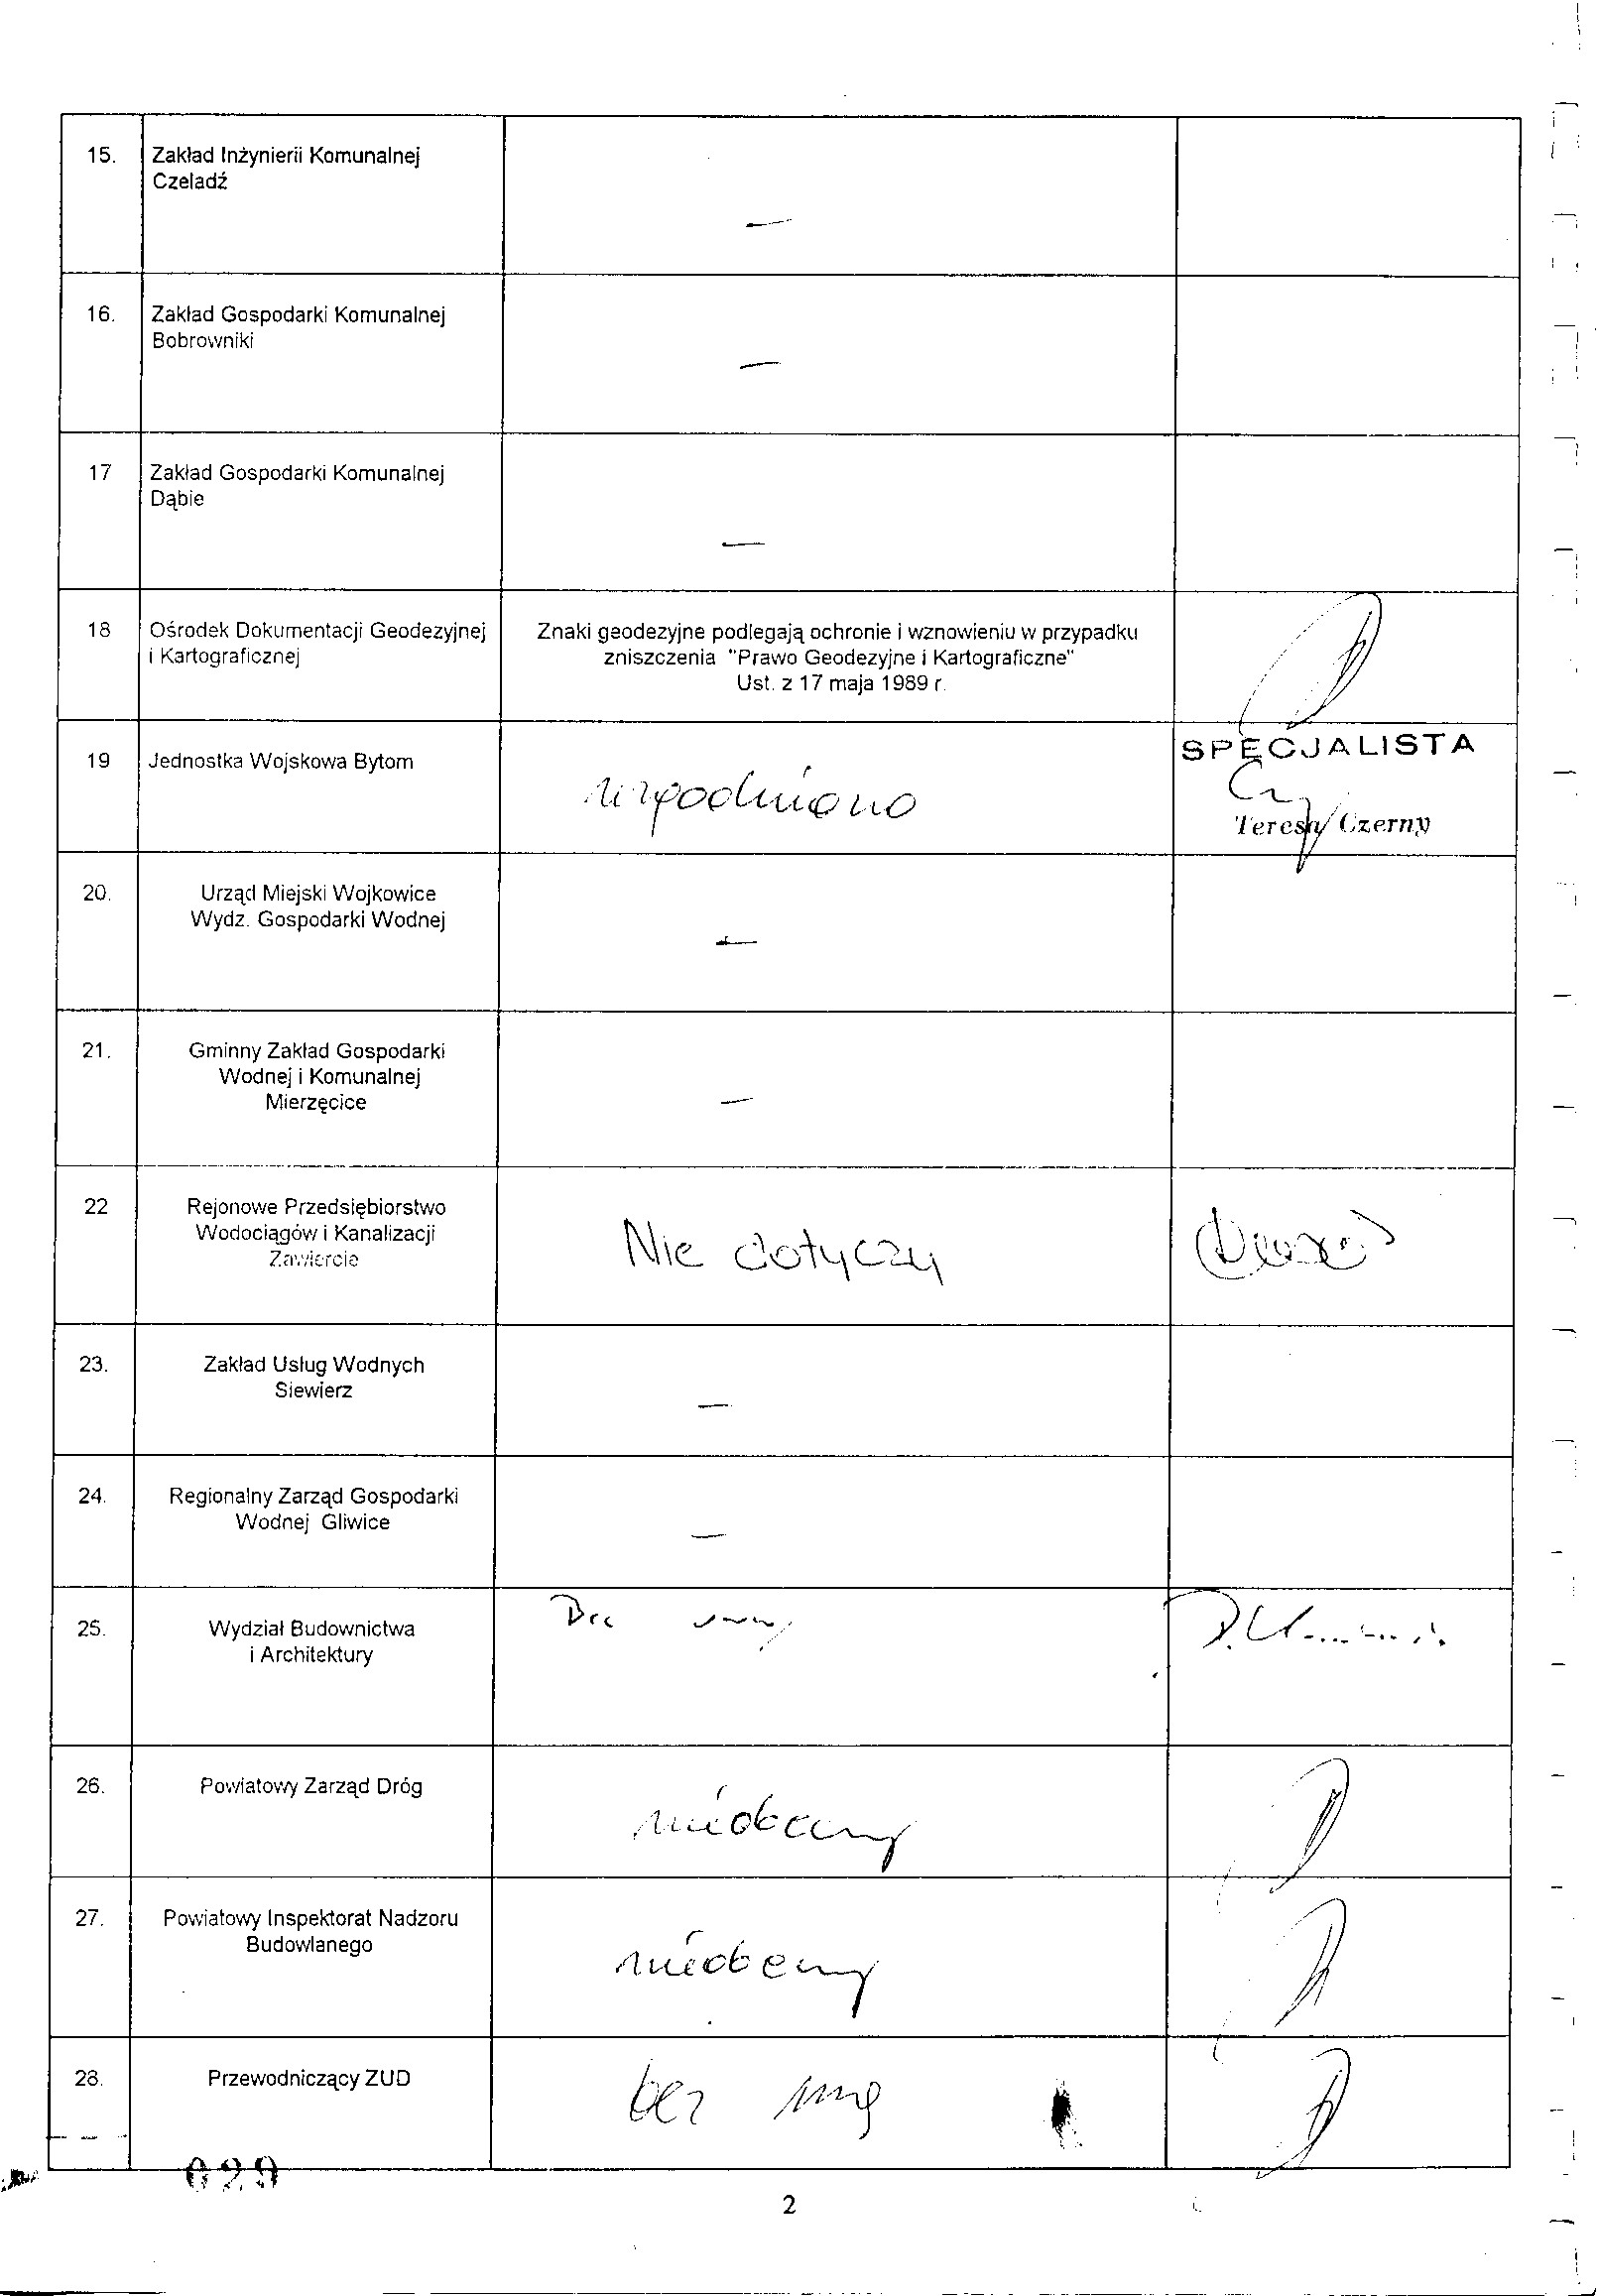 15. Zakład Inżynierii Komunalnej
Czeladź
—
16. Zakład Gospodarki Komunalnej
Bobrowniki
—
17 Zakład Gospodarki Komunalnej
Dąbie
—
18 Ośrodek Dokumentacji Geodezyjnej Znaki geodezyjne podlegają ochronie i wznowieniu w przypadku
i Kartograficznej zniszczenia "Prawo Geodezyjne i Kartograficzne"
Ust. z 17 maja 1989 r.
SPECJALISTA
19 Jednostka Wojskowa Bytom uzgodniono
Teresa Czerny
20. Urząd Miejski Wojkowice
Wydz. Gospodarki Wodnej
—
21. Gminny Zakład Gospodarki
Wodnej i Komunalnej
Mierzęcice
—
22 Rejonowe Przedsiębiorstwo
Wodociągów i Kanalizacji Nie dotyczy
Zawiercie
23. Zakład Usług Wodnych
Siewierz
—
24. Regionalny Zarząd Gospodarki
Wodnej Gliwice
—
25. Wydział Budownictwa Bez uwag
i Architektury
26. Powiatowy Zarząd Dróg
nieobecny
27. Powiatowy Inspektorat Nadzoru
Budowlanego nieobecny
28. Przewodniczący ZUD bez uwag
029
2